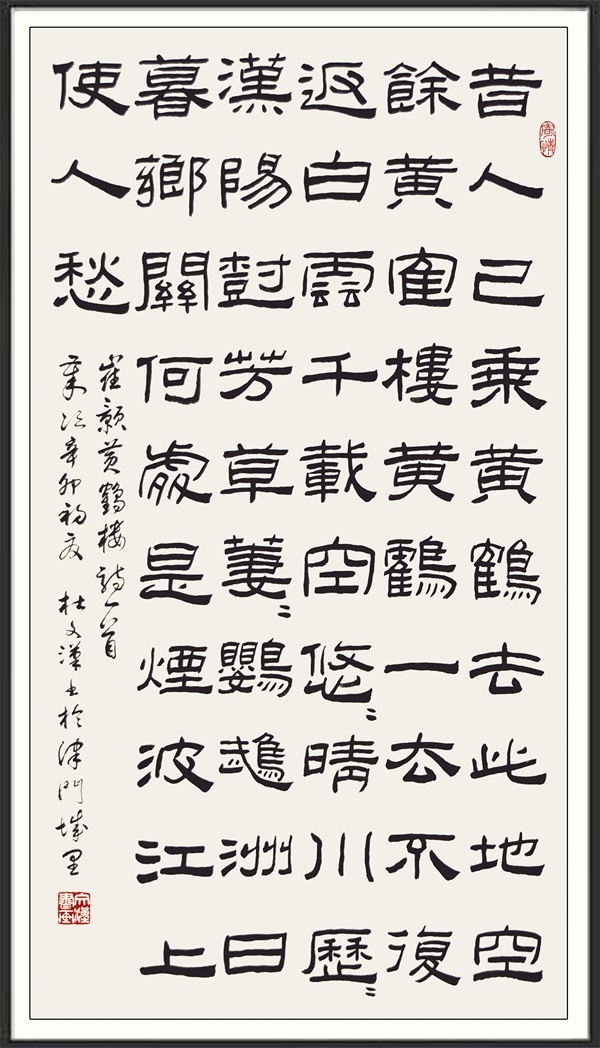 昔人已乘黃鶴去此地空
餘黃寉樓黃鸖一去不復
返白雲千載空悠〻晴川歷〻
漢陽樹芳草萋〻鸚鵡洲日
暮鄉關何處是煙波江上
使人愁
崔顥黃鶴樓詩一首
歲次辛卯初夏 杜文漢書於津門城里